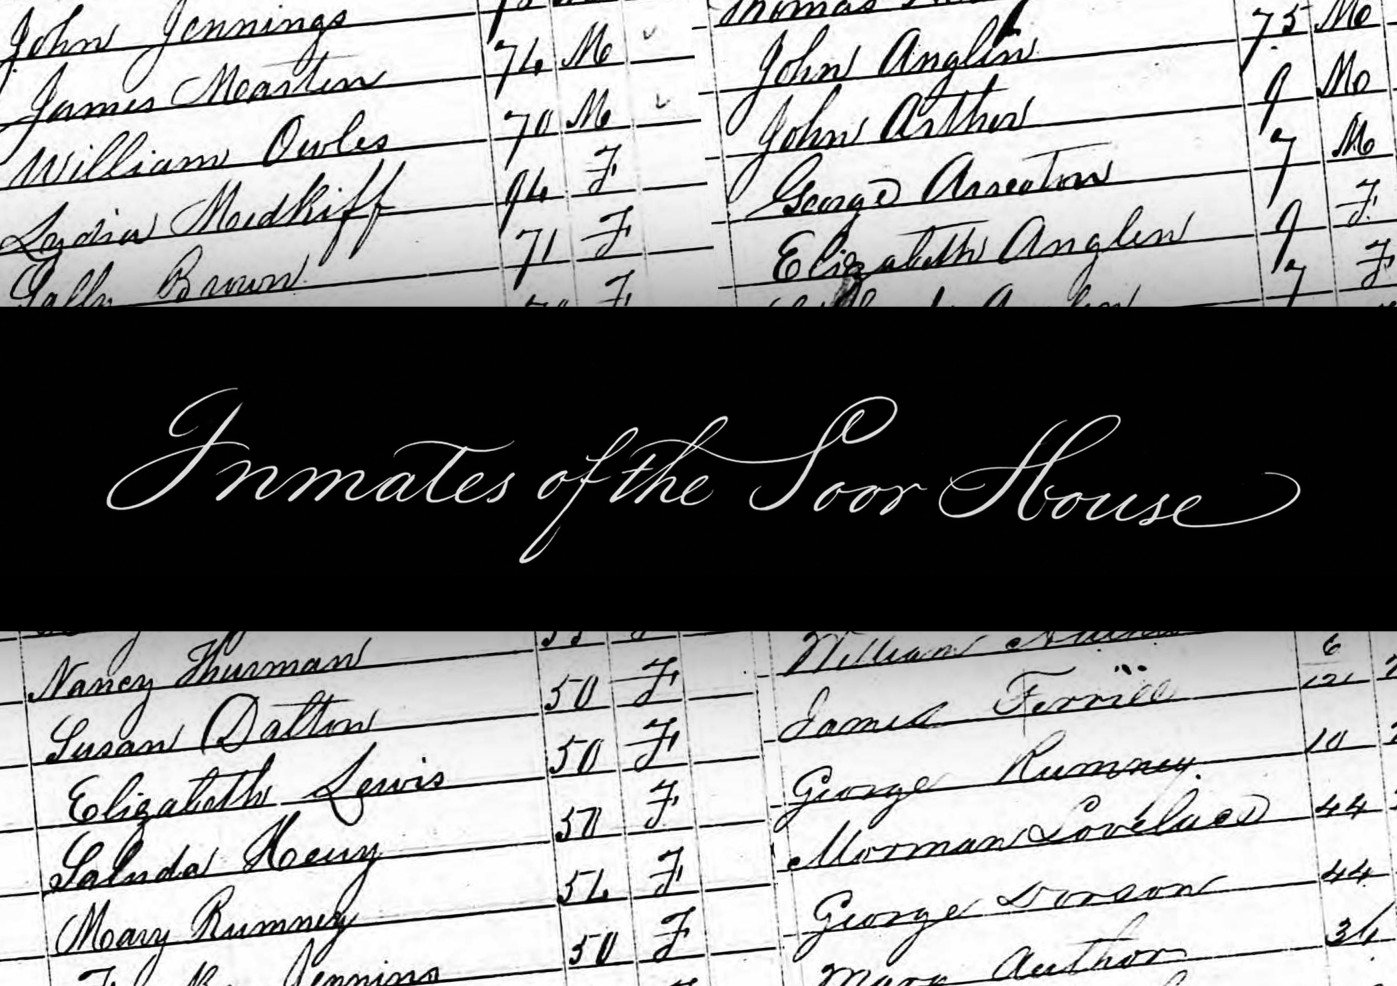 John Jennings 74 M
James Martin 70 M
William Owles
Lydia Medkiff 94 F
Sally Brown 71 F
F
Thomas 75 M
John Anglin 9 M
John Arthur 7 M
George Arreaton 9 F
Elizabeth Anglin 7 F
Inmates of the Poor House
Nancy Thurman 50 F
Susan Dalton 50 F
Elizabeth Lewis 50 F
Henry F
Mary Rumney 50 F
Jennins
William 6
James Ferrill
George Rumney 10
Morman Lovelace 44
George Dorson 44
Mary Author 36